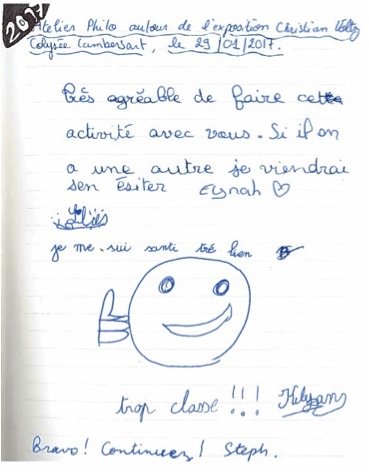 2017
Atelier Philo autour de l'exposition Christian Voltz
Colysée Lambersart, le 29/01/2017.
Très agréable de faire cette
activité avec vous. Si il on
a une autre je viendrai
sen ésiter Eynah ♡
je me sui santi tré bien
trop classe !!! Kelyan
Bravo! Continuez! Steph.